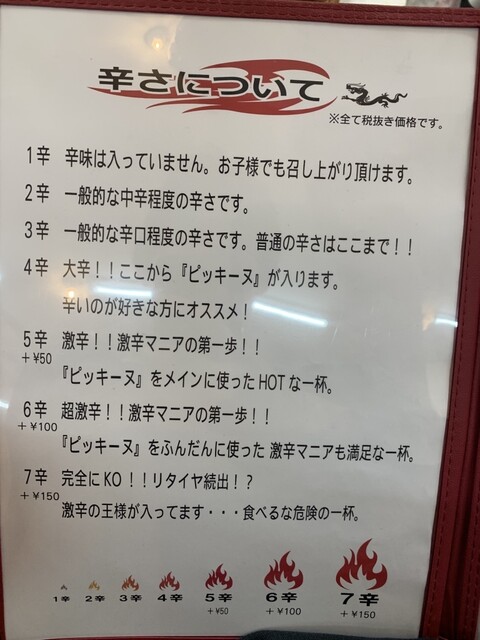 辛さについて
※全て税抜き価格です。
1辛 辛味は入っていません。お子様でも召し上がり頂けます。
2辛 一般的な中辛程度の辛さです。
3辛 一般的な辛口程度の辛さです。普通の辛さはここまで！！
4辛 大辛！！ここから『ピッキーヌ』が入ります。
辛いのが好きな方にオススメ！
5辛 激辛！！激辛マニアの第一歩！！
+¥50
『ピッキーヌ』をメインに使ったHOTな一杯。
6辛 超激辛！！激辛マニアの第一歩！！
+¥100
『ピッキーヌ』をふんだんに使った 激辛マニアも満足な一杯。
7辛 完全にKO！！リタイヤ続出！？
+¥150
激辛の王様が入ってます・・・食べるな危険の一杯。
1辛 2辛 3辛 4辛 5辛 6辛 7辛
+¥50 +¥100 +¥150